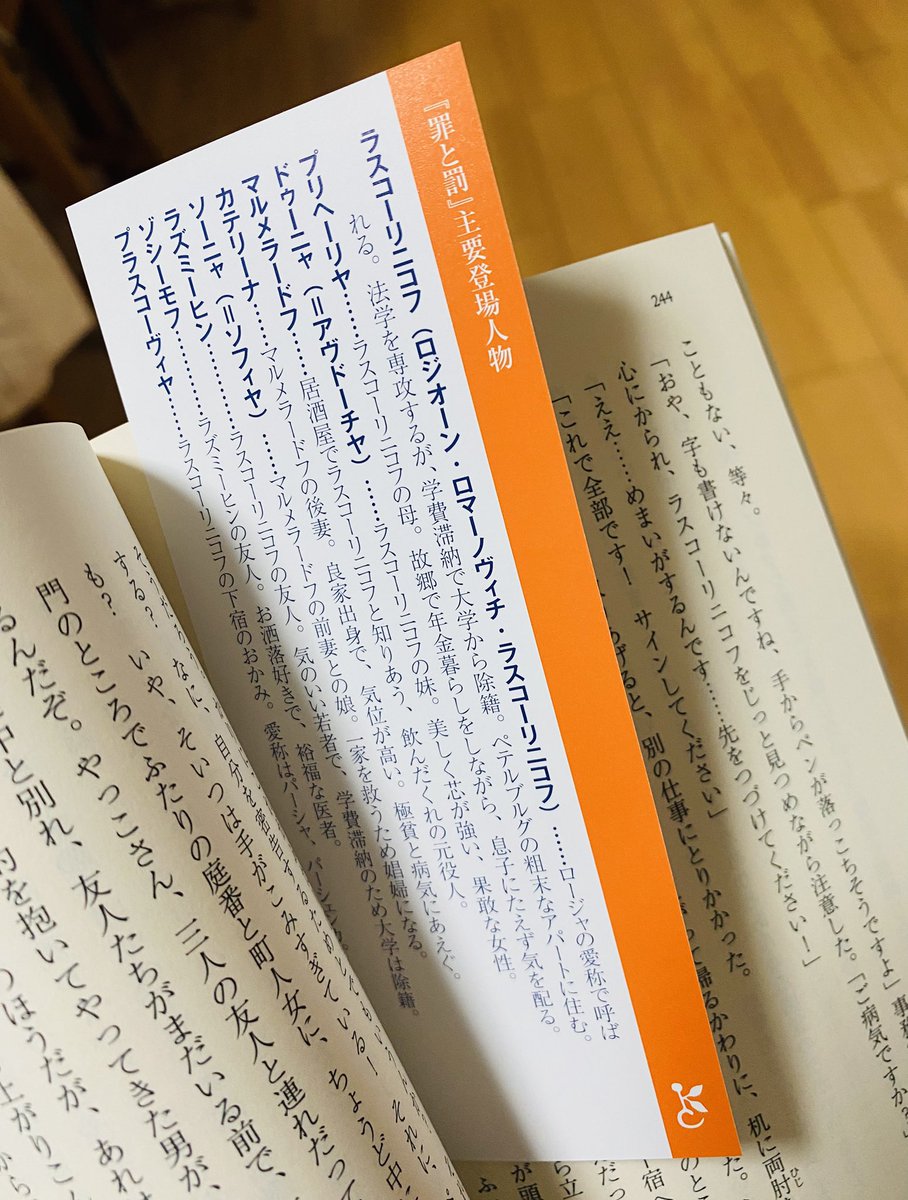 『罪と罰』主要登場人物
ラスコーリニコフ（ロジオーン・ロマーノヴィチ・ラスコーリニコフ）……ロージャの愛称で呼ば
れる。法学を専攻するが、学費滞納で大学から除籍。ペテルブルグの粗末なアパートに住む。
プリヘーリヤ……ラスコーリニコフの母。故郷で年金暮らしをしながら、息子にたえず気を配る。
ドゥーニャ（＝アヴドーチヤ）……ラスコーリニコフの妹。美しく芯が強い、果敢な女性。
マルメラードフ……居酒屋でラスコーリニコフと知りあう、飲んだくれの元役人。極貧と病気にあえぐ。
カテリーナ……マルメラードフの後妻。良家出身で、気位が高い。
ソーニャ（＝ソフィヤ）……マルメラードフの前妻との娘。一家を救うため娼婦になる。
ラズミーヒン……ラスコーリニコフの友人。気のいい若者で、学費滞納のため大学は除籍。
ゾシーモフ……ラズミーヒンの友人。お洒落好きで、裕福な医者。
プラスコーヴィヤ……ラスコーリニコフの下宿のおかみ。愛称はパーシャ、パーシェンカ
244
こともない、等々。
「おや、字も書けないんですね、手からペンが落っこちそうですよ」
心にかられ、ラスコーリニコフをじっと見つめながら注意した。「ご病気ですか？」
「ええ……めまいがするんです……先をつづけてください！」
「これで全部です！　サインしてください」
げると、別の仕事にとりかかった。
て帰るかわりに、机に両肘
ひじ
する？　なに、そいつは手がこみすぎている！　ちょうど中
も？　いや、
門のところでふたりの庭番と町人女に、
るんだぞ。やっこさん、三人の友人と連れだって
と別れ、友人たちがまだいる前で、
を抱いてやってきた男が、